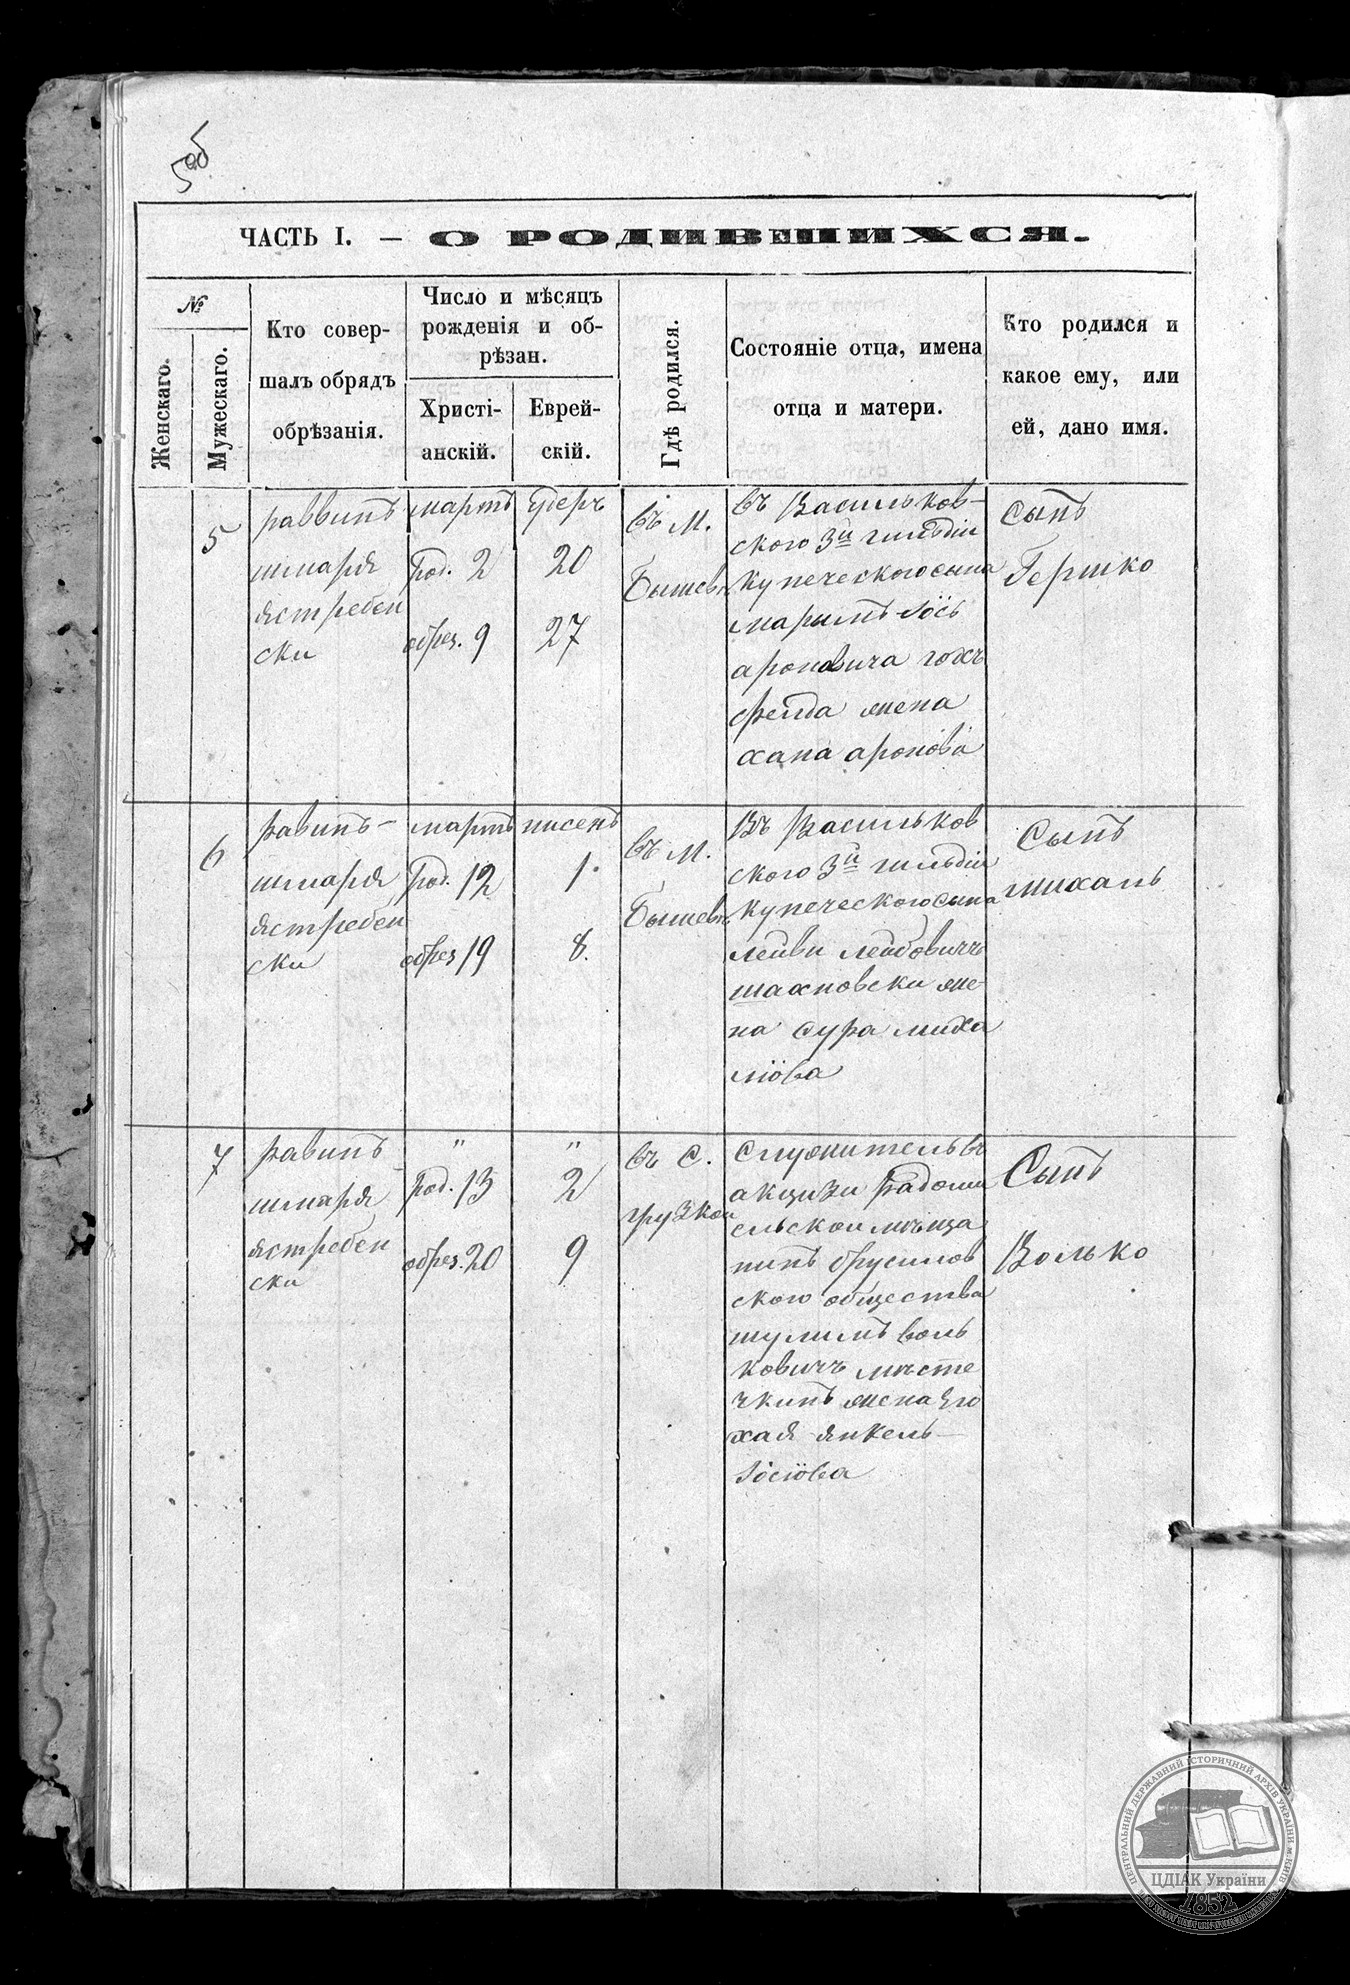 5об
ЧАСТЬ I. — О РОДИВШИХСЯ.
№
Женскаго.
Мужескаго.
Кто совер-
шалъ обрядъ
обрѣзанія.
Число и мѣсяцъ
рожденія и об-
рѣзан.
Христі-
анскій.
Еврей-
скій.
Гдѣ родился.
Состояніе отца, имена
отца и матери.
Кто родился и
какое ему, или
ей, дано имя.
5
раввинъ
шмаря
ястребен
ски
мартъ
род. 2
обрез. 9
20
27
въ м.
Бышевъ
въ Васильков-
ского 3й гильдіи
купеческого сына
Іось
ароновича
жена
хана аронова
Сынъ
Гершко
6
равинъ-
шмаря
ястребен
ски
мартъ
род. 12
обрез 19
нисенъ
1.
8.
въ м.
Бышевъ
Въ Васильков
ского 3й гильдіи
купеческого сына
лейви лейбовичъ
шахновски же-
на сура миха
ліова
Сынъ
михаль
7
равинъ-
шмаря
ястребен
ски
"
род. 13
обрез. 20
"
2
9
въ с.
грузкои
Служитель въ
акцизи радоми
сельскои мѣща
нинъ брусилов
ского общества
шулимъ воль
ковичъ мѣсте
чкинъ жена
хая янкель-
Іосіова
Сынъ
Волько
ЦЕНТРАЛЬНИЙ ДЕРЖАВНИЙ ІСТОРИЧНИЙ АРХІВ УКРАЇНИ, м. КИЇВ
ЦДІАК України
1852